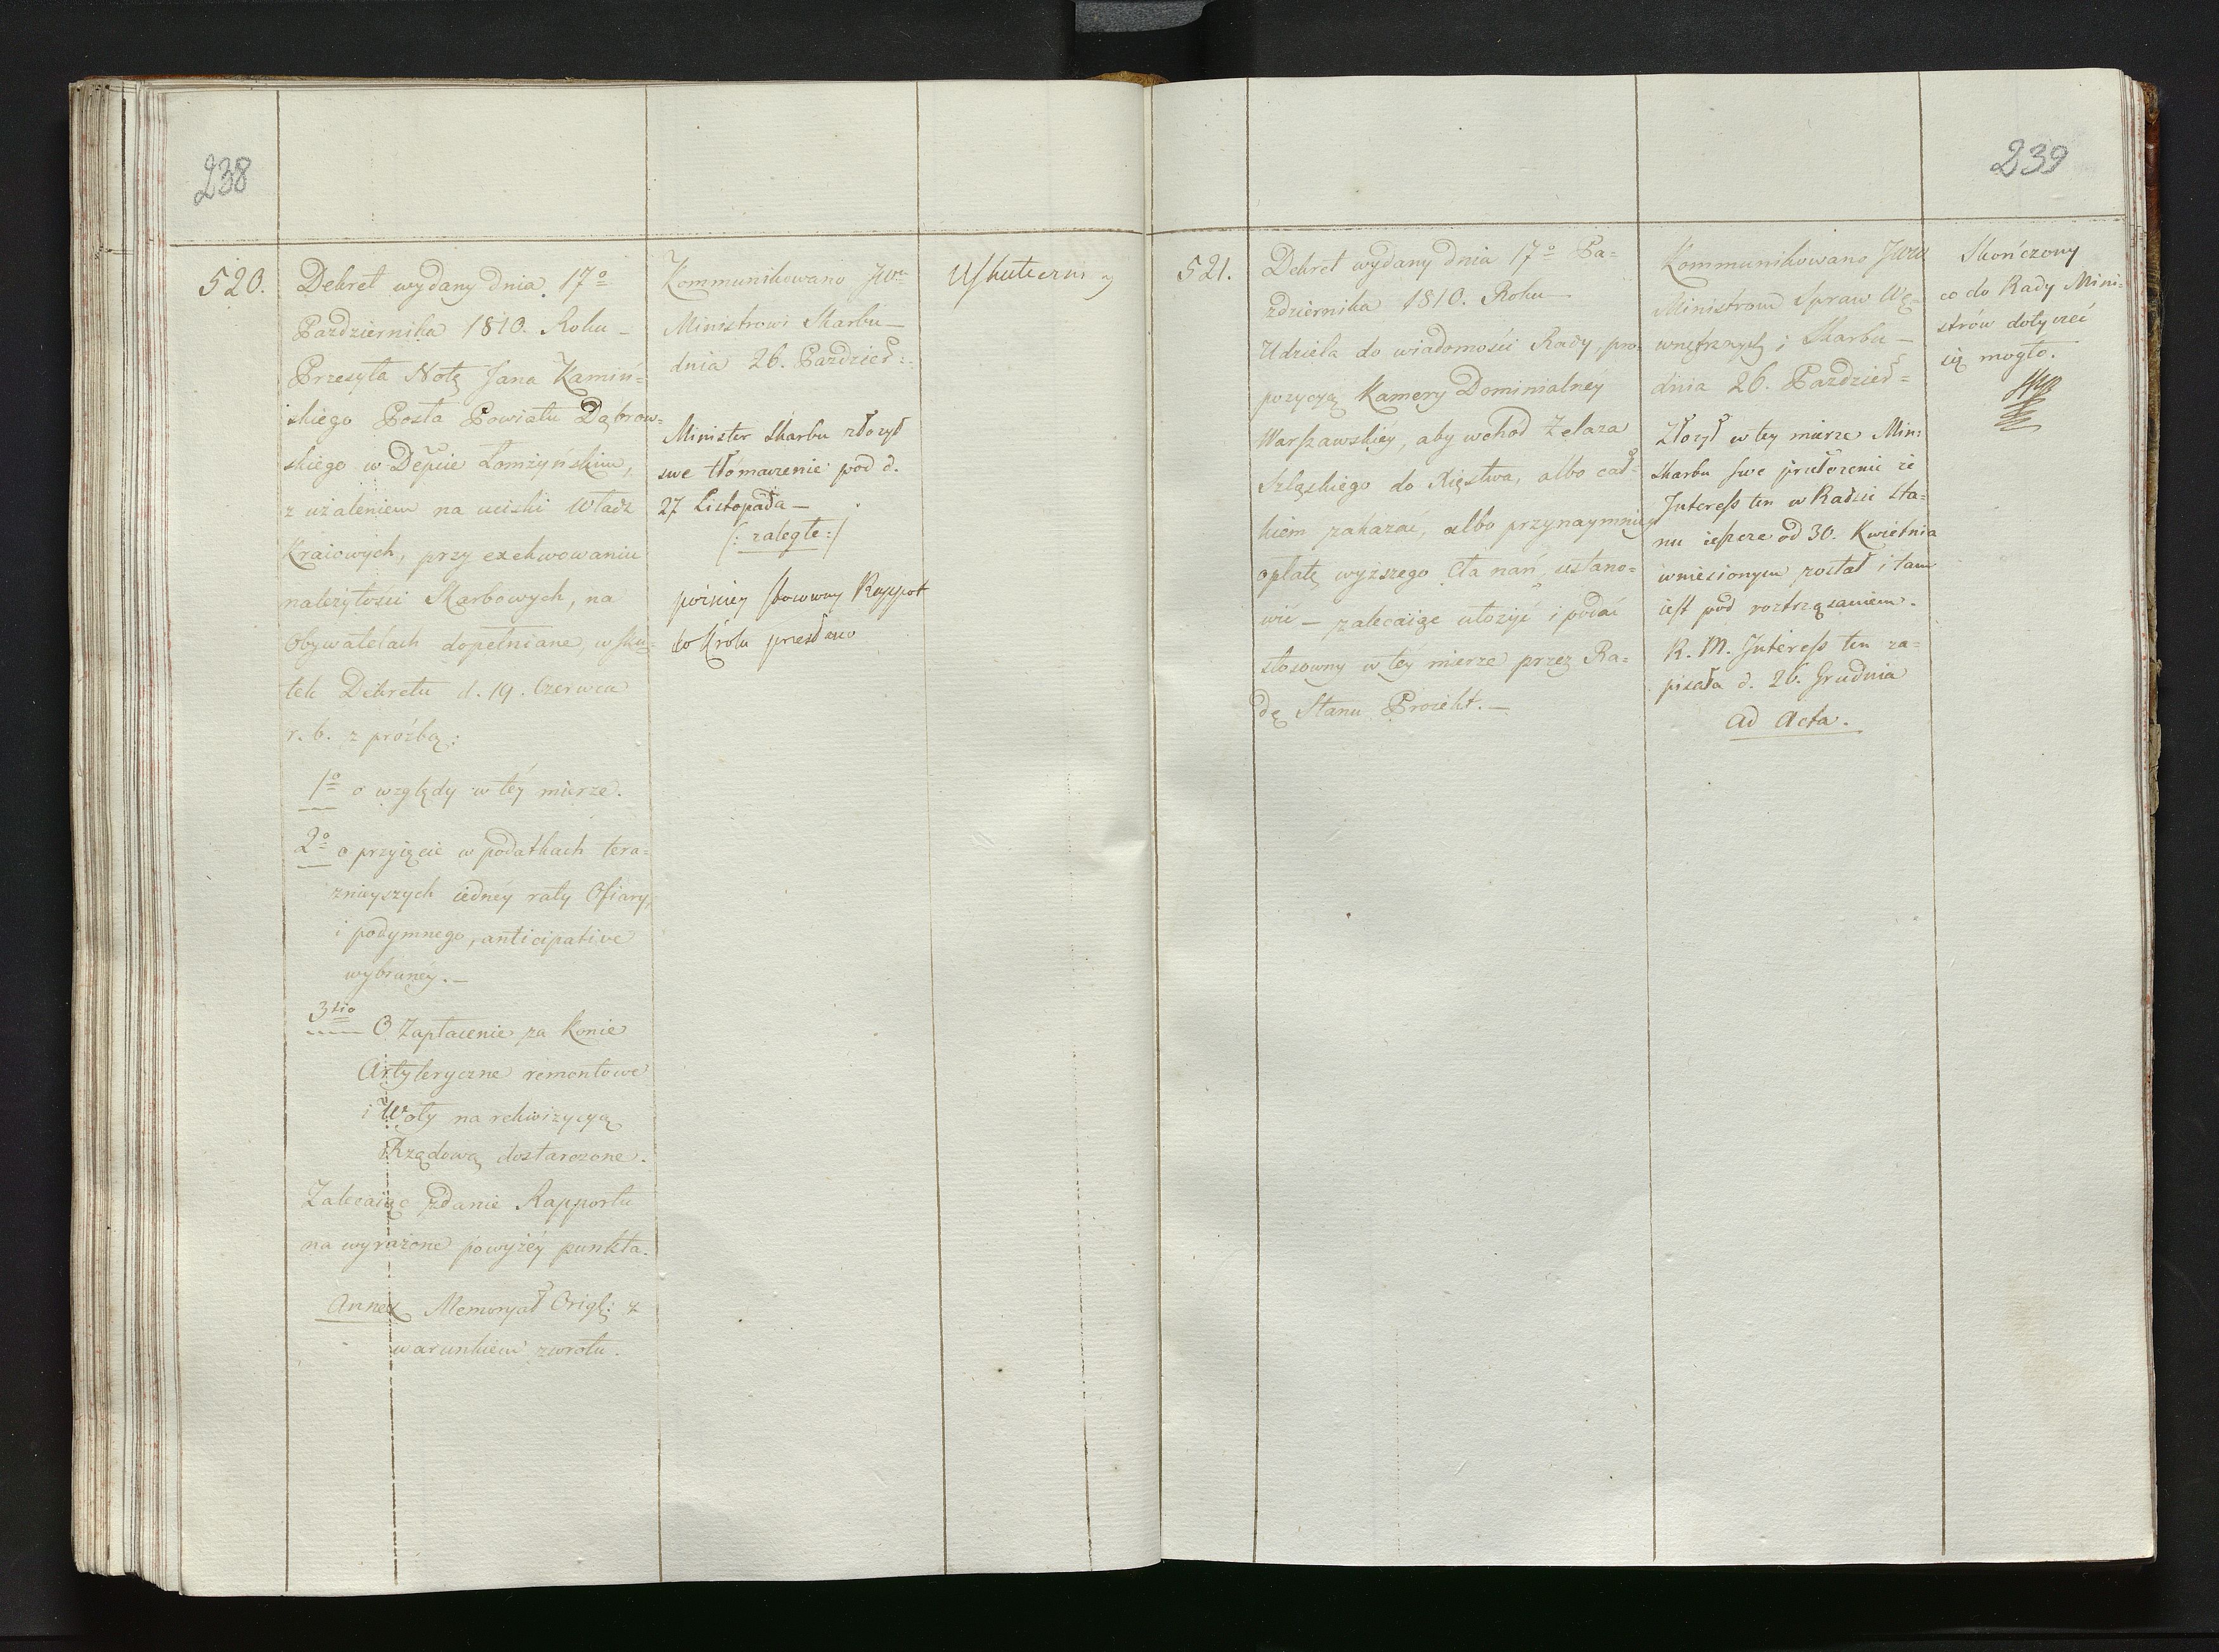 238
520.
Dekret wydany dnia 17º
Pazdziernika 1810. Roku –
Przesyła Notę Jana Kamiń=
skiego Posła Powiatu Dąbrow=
skiego w Depcie Łomżyńskim,
z użaleniem na uciski Władz
Kraiowych, przy exekwowaniu
należytości Skarbowych, na
Obywatelach dopełniane, w sku=
tek Dekretu d. 19. Czerwca
r. b. z prózbą:
1º o względy w téy mierze.
2º o przyięcie w podatkach tera=
znieyszych iednéy raty Ofiary,
i podymnego, anticipative
wybranéy. –
3tio O Zapłacenie za konie
Artyleryczne remontowe
i Woły na rekwizycyą
Rządową dostarczone.
Zalecaiąc zdanie Rapportu
na wyrażone powyżéy punkta.
Annex Memoryał Origl: z
warunkiem zwrotu.
Kommunikowano JWu
Ministrowi Skarbu –
dnia 26. Pazdzier:
Minister Skarbu złożył
swe tłómaczenie pod d.
27 Listopada –
/: zaległe :/
pózniey stosowny Rapport
do Króla przesłano
Uskuteczn
521.
Dekret wydany dnia 17º Pa=
zdziernika 1810. Roku –
Udziela do wiadomości Rady, pro=
pozycyą Kamery Dominialnéy
Warszawskiéy, aby wchod Żelaza
Szląskiego do Xięstwa, albo cał=
kiem zakazać, albo przynaymniéy
opłatę wyższego Cła nań ustano=
wić – zalecaiąc ułożyć i podać
stosowny w téy mierze przez Ra=
dę Stanu Proiekt. –
Kommunikowano JWW
Ministrom Spraw We=
wnętrznych i Skarbu –
dnia 26. Pazdzier=
Złożył w tey mierze Min:
Skarbu swe przełożenie że
Interess ten w Radzie Sta=
nu ieszcze od 30. Kwietnia
wniesionym został i tam
iest pod roztrząsaniem.
R. M. Interess ten za=
pisała d. 26. Grudnia
ad Acta.
239
Skończony
co do Rady Mini=
strów dotyczeć
się mogło.